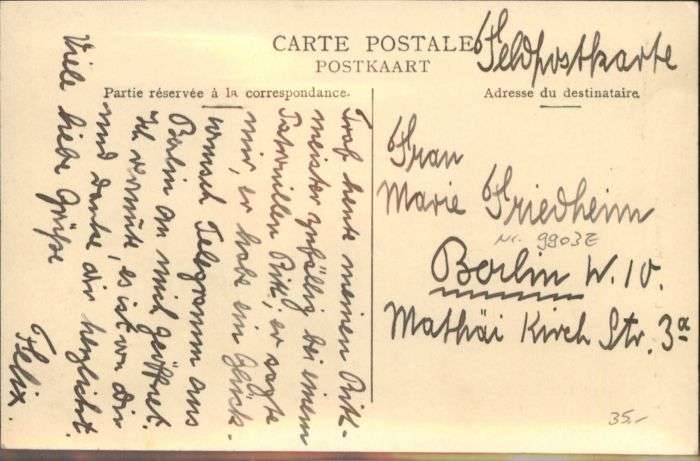 CARTE POSTALE
POSTKAART
Partie réservée à la correspondance.
Adresse du destinataire.
Feldpostkarte
Traf heute meinen Ritt-
meister zufällig bei einem
Patrouillen Ritt, er sagte
mir, er habe ein Glück-
wunsch Telegramm aus
Berlin an mich geöffnet.
Ich vermute, es ist von Dir
und danke dir herzlichst.
Viele liebe Grüße
Felix.
Frau
Marie Friedheim
Nr. 9903Z
Berlin W. 10.
Mathäi Kirch Str. 3a
35.-